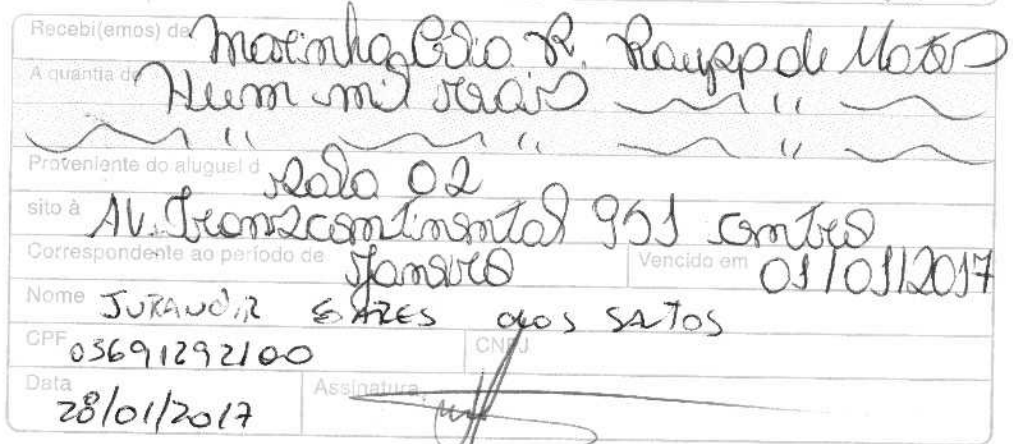 Recebi(emos) de Marinha Célia R. Raupp de Matos
A quantia de Hum mil reais ~ " ~
~ " ~ " ~ " ~
Proveniente do aluguel d Sala 02
sito à AV. Transcontinental 951 Centro
Correspondente ao período de Janeiro Vencido em 01/01/2017
Nome JURANDIR SOARES dos SANTOS
CPF 03691292100 CNPJ
Data 28/01/2017 Assinatura